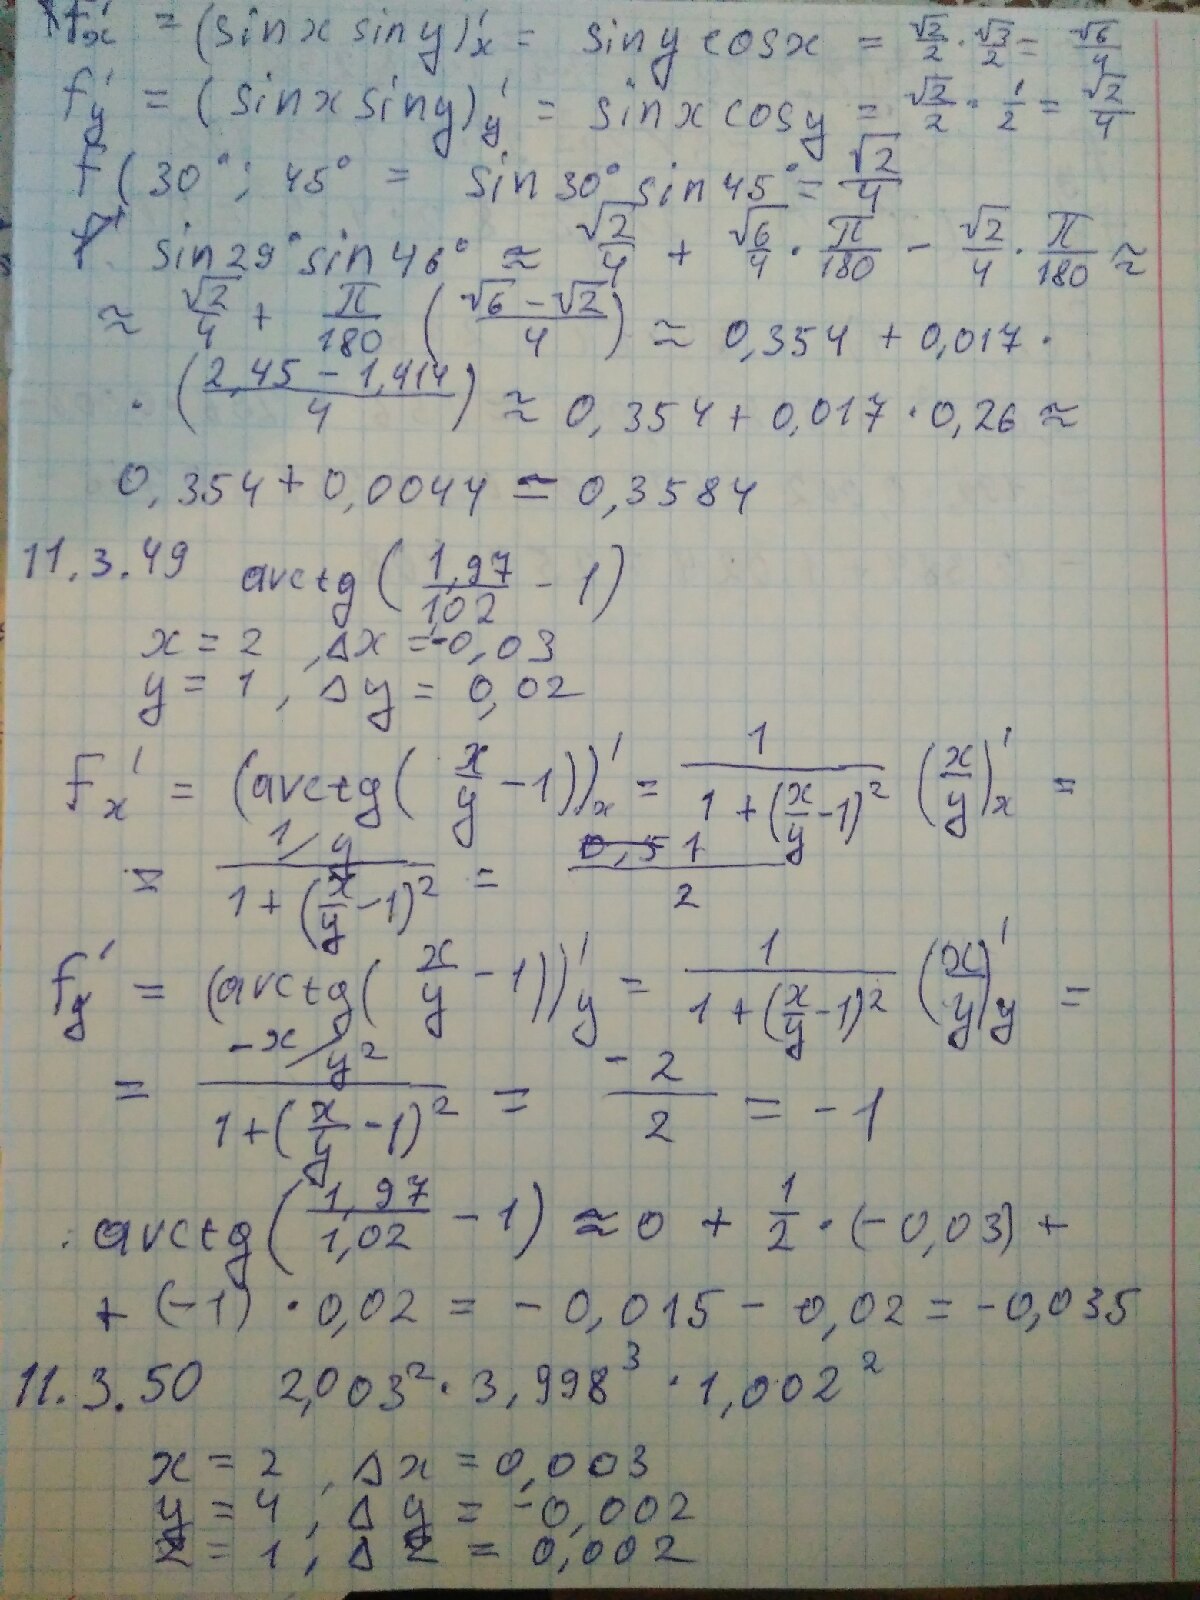 f'x = (sinx siny)'x = siny cosx = √2/2 · √3/2 = √6/4
f'y = (sinx siny)'y = sinx cosy = √2/2 · 1/2 = √2/4
f(30°; 45° = sin30° sin45° = √2/4
sin29° sin46° ≈ √2/4 + √6/4 · π/180 - √2/4 · π/180 ≈
≈ √2/4 + π/180 ((√6 - √2)/4) ≈ 0,354 + 0,017 ·
· ((2,45 - 1,414)/4) ≈ 0,354 + 0,017 · 0,26 ≈
0,354 + 0,0044 = 0,3584
11.3.49 arctg(1,97/1,02 - 1)
x = 2 , Δx = -0,03
y = 1 , Δy = 0,02
fx' = (arctg(x/y - 1))'x = 1/(1 + (x/y - 1)²) (x/y)'x =
= (1/y)/(1 + (x/y - 1)²) = 1/2
fy' = (arctg(x/y - 1))'y = 1/(1 + (x/y - 1)²) (x/y)'y =
= (-x/y²)/(1 + (x/y - 1)²) = -2/2 = -1
arctg(1,97/1,02 - 1) ≈ 0 + 1/2 · (-0,03) +
+ (-1) · 0,02 = - 0,015 - 0,02 = -0,035
11.3.50 2,003² · 3,998³ · 1,002²
x = 2 , Δx = 0,003
y = 4 , Δy = -0,002
z = 1 , Δz = 0,002